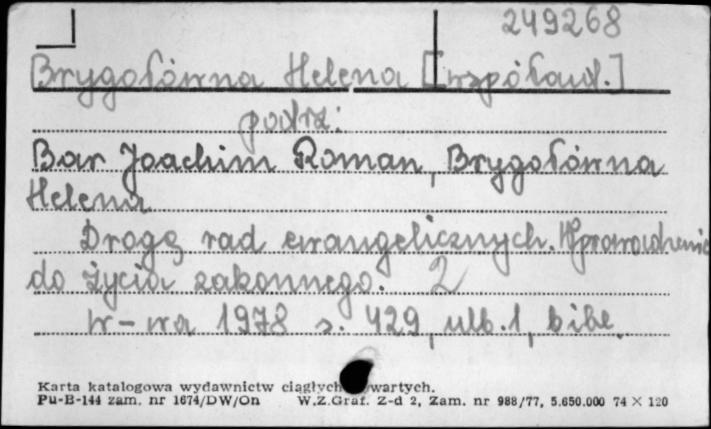 249268
Brygołówna Helena [współaut.]
podrz:
Bar Joachim Roman, Brygołówna
Helena
Drogą rad ewangelicznych. Wprowadzenie
do życia zakonnego. 2
W-wa 1978 s. 429, ulb. 1, bibl.
Karta katalogowa wydawnictw ciągłych wartych.
Pu-B-144 zam. nr 1674/DW/On W.Z.Graf. Z-d 2, Zam. nr 988/77, 5.650.000 74 × 120